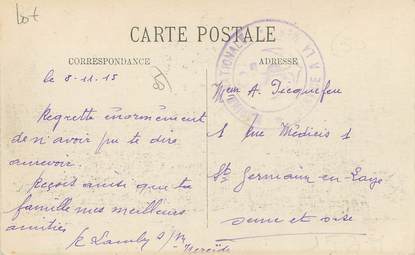 Lot
CARTE POSTALE
CORRESPONDANCE
ADRESSE
le 8-11-15
Regrette énormément
de n'avoir pu te dire
aurevoir.
Reçois ainsi que ta
famille mes meilleurs
amitiés
Mem A. Picquefeu
1 Rue Médicis 1
St Germain-en-Laye
Seine et Oise